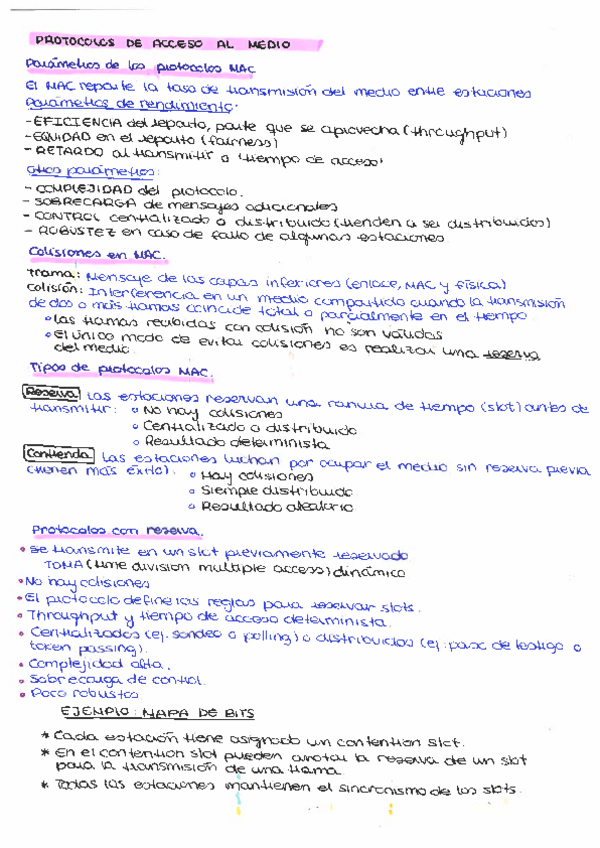 PROTOCOLOS DE ACCESO AL MEDIO
Parámetros de los protocolos MAC
El MAC reparte la tasa de transmisión del medio entre estaciones
Parámetros de rendimiento:
-EFICIENCIA del reparto, parte que se aprovecha (throughput)
-EQUIDAD en el reparto (fairness)
- RETARDO al transmitir o tiempo de acceso.
Otros parámetros:
- COMPLEJIDAD del protocolo.
- SOBRECARGA de mensajes adicionales
- CONTROL centralizado o distribuido (tienden a ser distribuidos)
- ROBUSTEZ en caso de fallo de algunas estaciones
Colisiones en MAC.
trama: Mensaje de las capas inferiores (enlace, MAC y física)
colisión: Interferencia en un medio compartido cuando la transmisión
de dos o más tramas coincide total o parcialmente en el tiempo
o Las tramas recibidas con colisión no son válidas
o El único modo de evitar colisiones es realizar una reserva
del medio.
Tipos de protocolos MAC.
Reserva Las estaciones reservan una ranura de tiempo (slot) antes de
transmitir: o No hay colisiones
o Centralizado o distribuido
o Resultado determinista
Contienda Las estaciones luchan por ocupar el medio sin reserva previa
(tienen más éxito): o Hay colisiones
o Siempre distribuido
o Resultado aleatorio
Protocolos con reserva.
• Se transmite en un slot previamente reservado
TDMA (time division multiple access) dinámico
• No hay colisiones
• El protocolo define las reglas para reservar slots.
• Throughput y tiempo de acceso determinista.
• Centralizados (ej. sondeo o polling) o distribuidos (ej: paso de testigo o
token passing).
• Complejidad alta.
• Sobrecarga de control.
• Poco robustos
EJEMPLO: MAPA DE BITS
* Cada estación tiene asignado un contention slot.
* En el contention slot pueden anotar la reserva de un slot
para la transmisión de una trama
* Todas las estaciones mantienen el sincronismo de los slots.